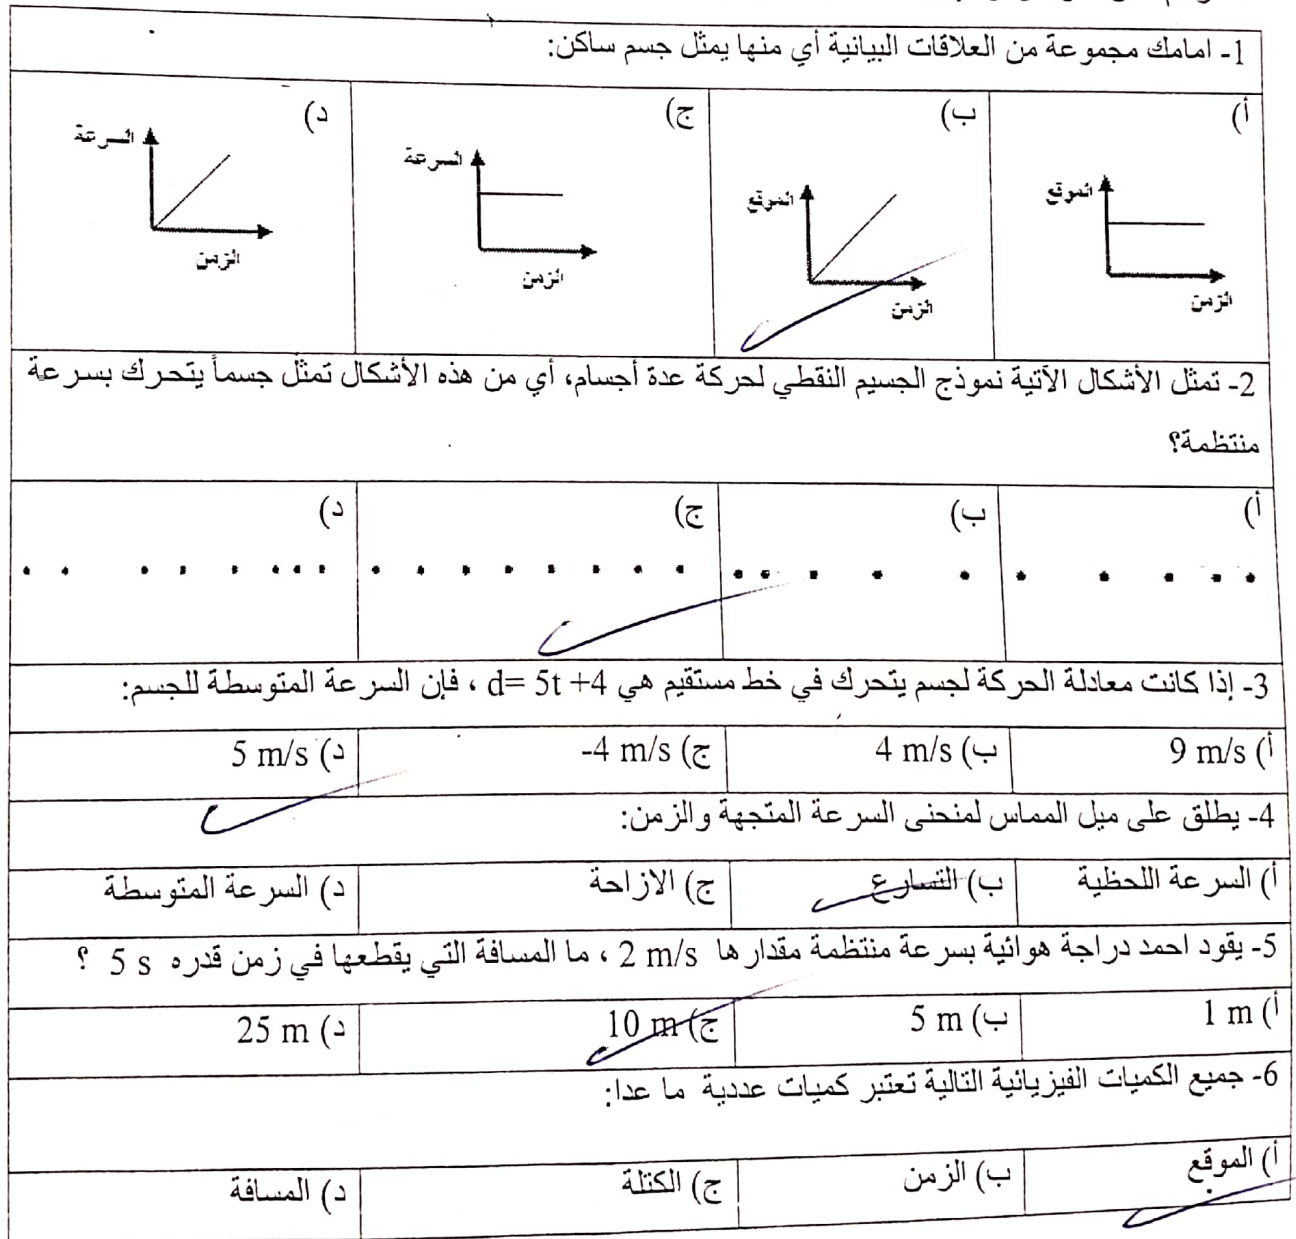 1- امامك مجموعة من العلاقات البيانية أي منها يمثل جسم ساكن:
أ) ب) ج) د)
الموقع الموقع السرعة السرعة
الزمن الزمن الزمن الزمن
2- تمثل الأشكال الآتية نموذج الجسيم النقطي لحركة عدة أجسام، أي من هذه الأشكال تمثل جسماً يتحرك بسرعة
منتظمة؟
أ) ب) ج) د)
3- إذا كانت معادلة الحركة لجسم يتحرك في خط مستقيم هي d= 5t +4 ، فإن السرعة المتوسطة للجسم:
أ) 9 m/s ب) 4 m/s ج) -4 m/s د) 5 m/s
4- يطلق على ميل المماس لمنحنى السرعة المتجهة والزمن:
أ) السرعة اللحظية ب) التسارع ج) الازاحة د) السرعة المتوسطة
5- يقود احمد دراجة هوائية بسرعة منتظمة مقدارها 2 m/s ، ما المسافة التي يقطعها في زمن قدره 5 s ؟
أ) 1 m ب) 5 m ج) 10 m د) 25 m
6- جميع الكميات الفيزيائية التالية تعتبر كميات عددية ما عدا:
أ) الموقع ب) الزمن ج) الكتلة د) المسافة